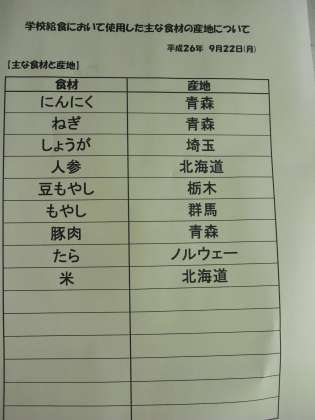 学校給食において使用した主な食材の産地について
平成26年 9月22日(月)
【主な食材と産地】
食材 産地
にんにく 青森
ねぎ 青森
しょうが 埼玉
人参 北海道
豆もやし 栃木
もやし 群馬
豚肉 青森
たら ノルウェー
米 北海道